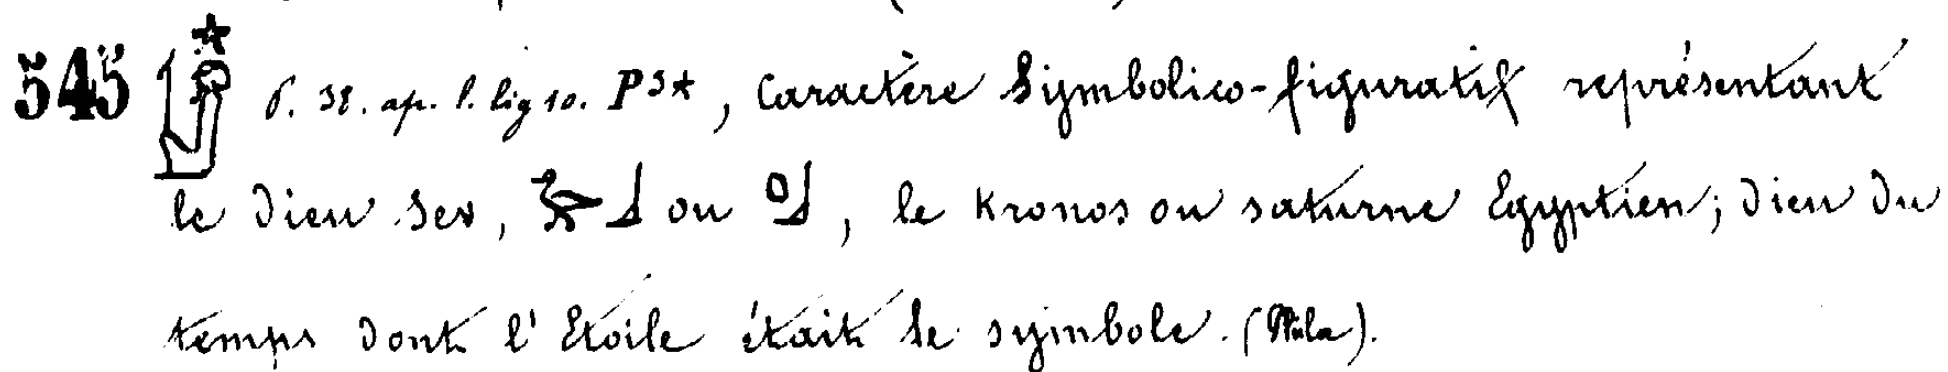 545 p. 38. ap. l. lig 10. P3*, Caractère Symbolico-figuratif représentant
le Dieu Sev, ou , le Kronos ou saturne Egyptien; Dieu Du
temps Dont l'Etoile était le symbole.